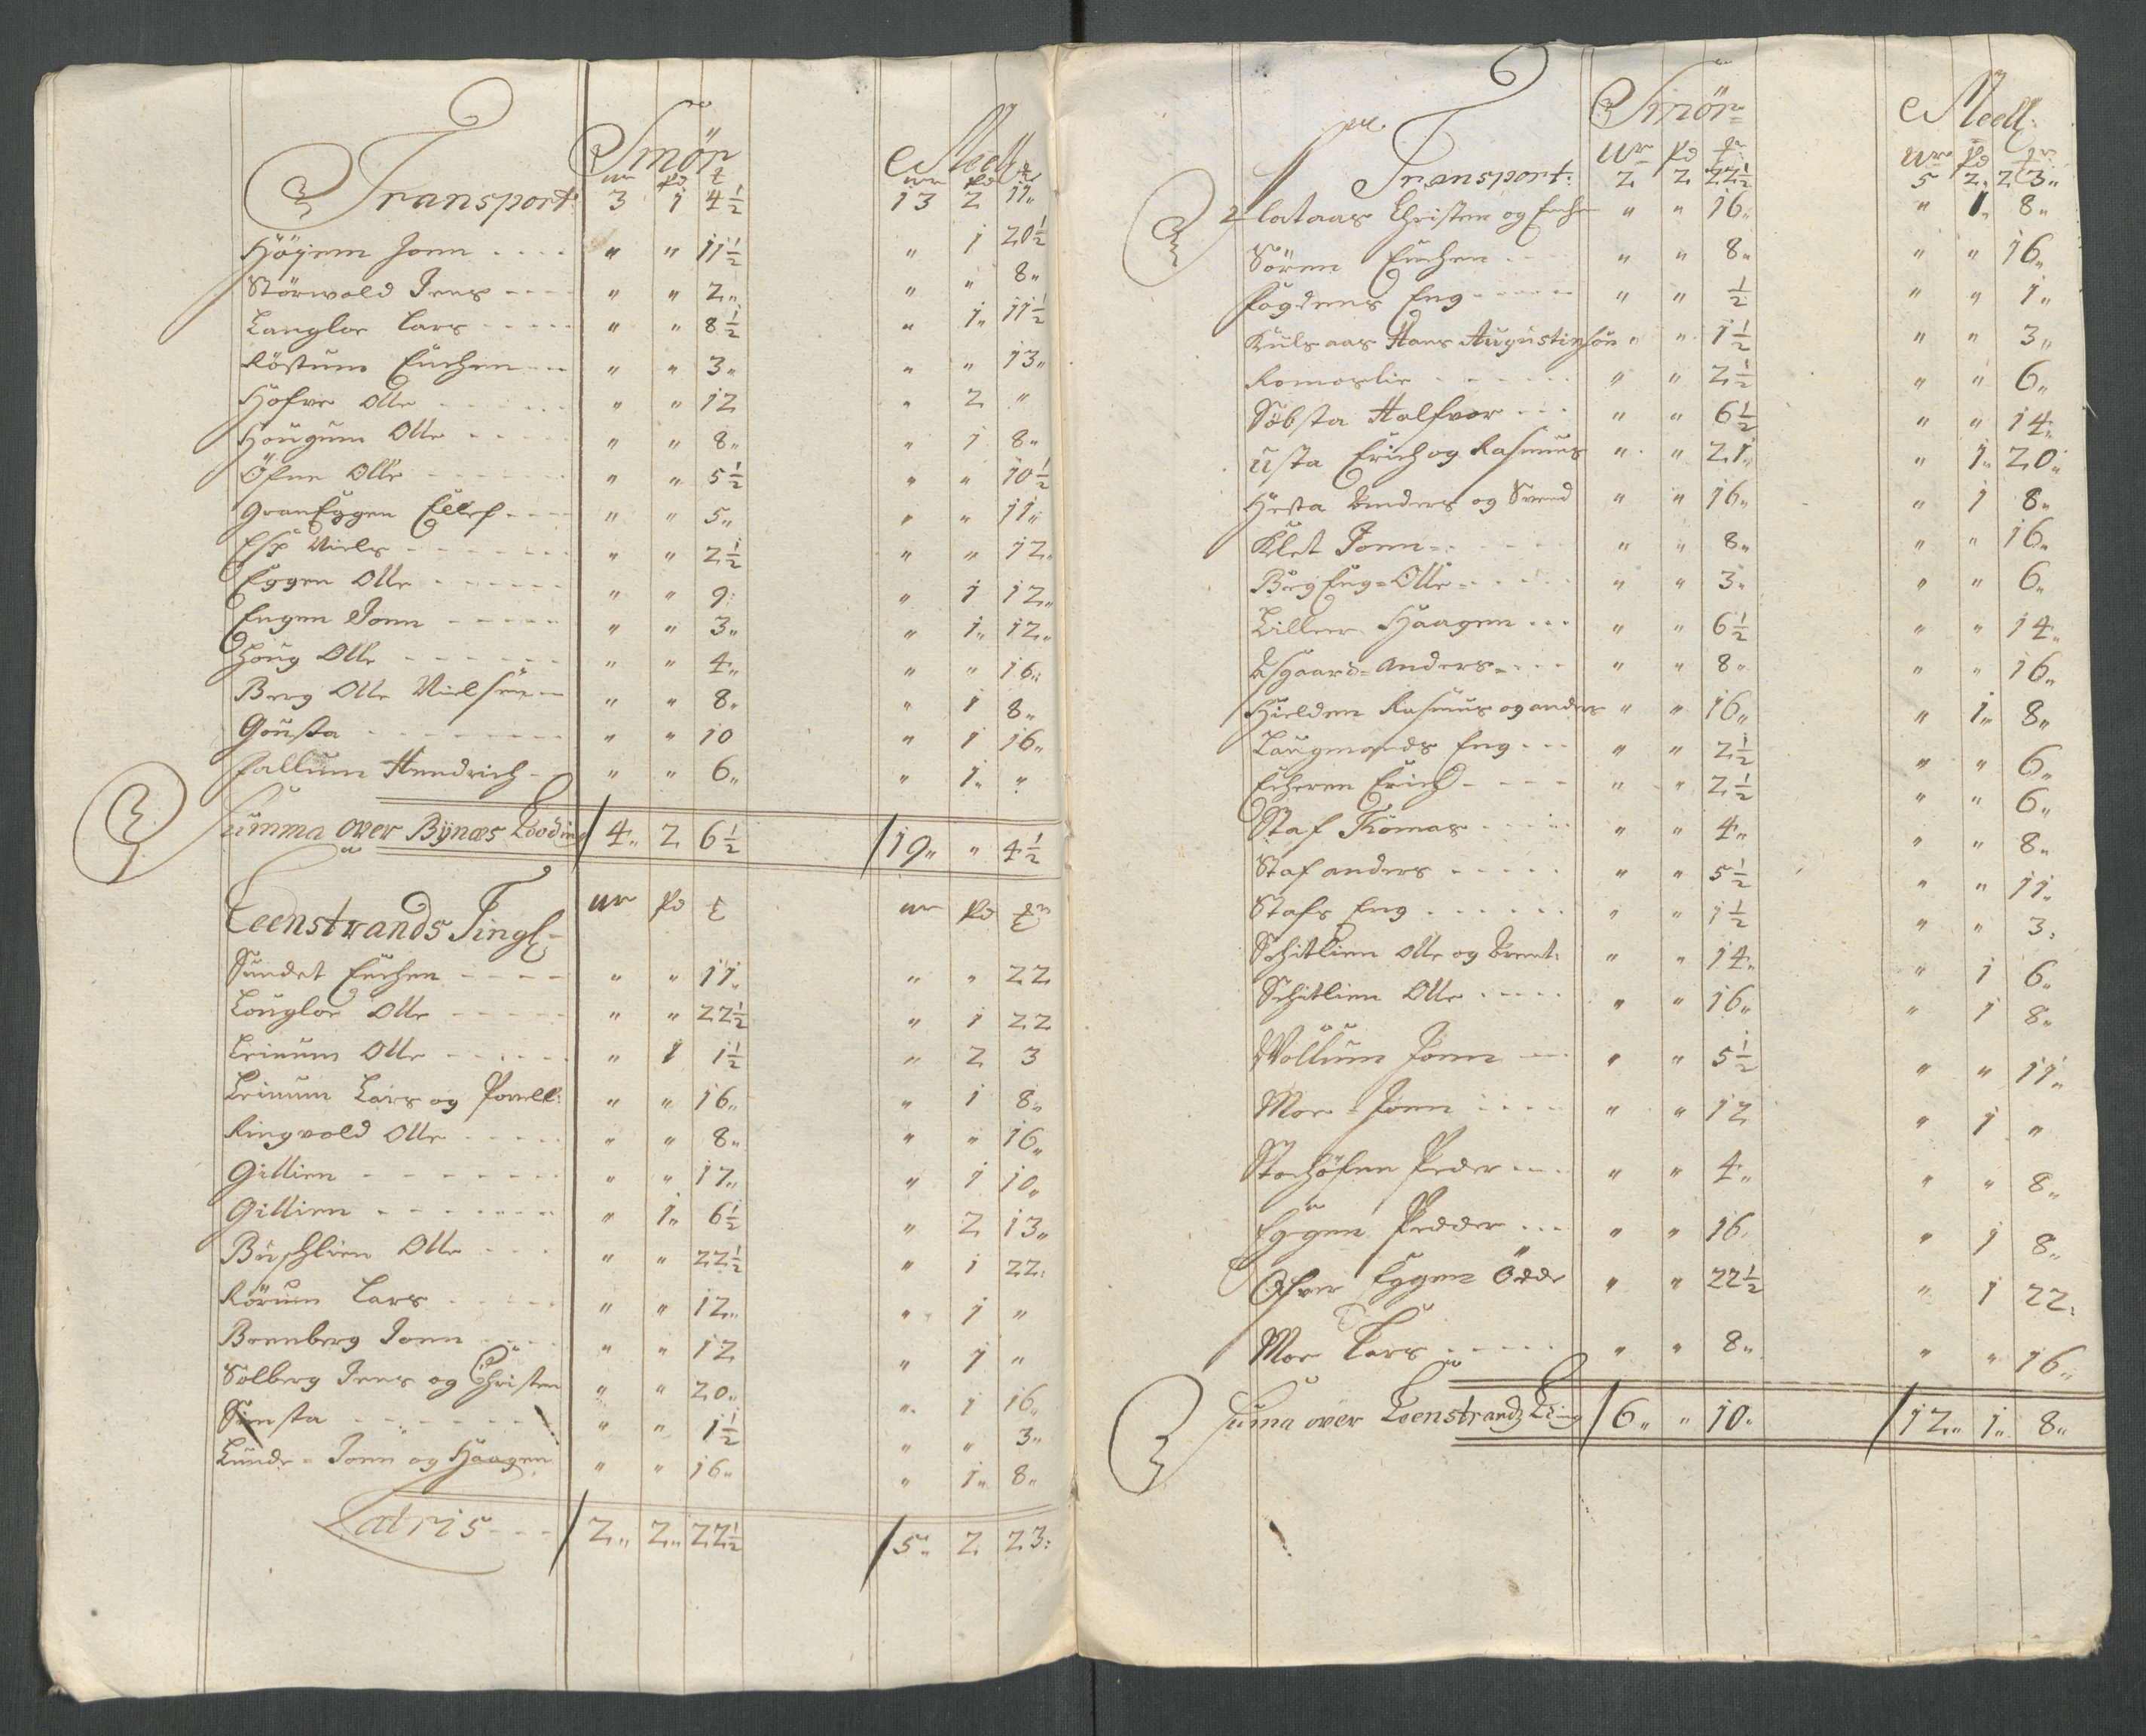 Smör Meell
wr pd t wr pd tr
Transport: 3 1 4½ 13 2 11„
Höyem Jonn .... „ „ 11½ „ 1 20½
Störwold Jens ---- „ „ 2„ „ „ 8„
Langloe Lars ----- „ „ 8½ „ 1„ 11½
Röstum Enchen --- „ „ 3„ „ „ 13„
Hofver Olle ..... „ „ 12 „ 2 „
Hougum Olle ----- „ „ 8„ „ 1 8„
Öfne Olle ------ „ „ 5½ „ „ 10½
GranEggen Ellef ---- „ „ 5„ „ „ 11„
Esp Niels ------- „ „ 2½ „ „ 12„
Eggen Olle ------ „ „ 9: „ 1 12„
Engen Jonn ----- „ „ 3„ „ 1„ 12„
Houg Olle ------ „ „ 4„ „ „ 16„
Berg Olle Nielsen -- „ „ 8„ „ 1 8„
Gousta -------- „ „ 10 „ 1 16„
Fallum Hendrich - „ „ 6„ „ 1„ „
Summa over Bÿnæs Leding 4„ 2 6½ 19„ „ 4½
Leenstrands Tingl- wr pd t wr pd tr
Sundet Enchen ---- „ „ 11„ „ „ 22
Lougloe Olle ----- „ „ 22½ „ 1 22
Leinum Olle ------ „ 1 1½ „ 2 3
Leinum Lars og Powell: „ „ 16„ „ 1 8„
Ringvold Olle ..... „ „ 8„ „ „ 16„
Gillien ------- „ „ 17„ „ 1 10„
Gillien ------- „ 1„ 6½ „ 2 13„
Buschlien Olle ... „ „ 22½ „ 1 22:
Rörum Lars ..... „ „ 12„ „ 1 „
Brenberg Jonn .... „ „ 12 „ 1 „
Solberg Jens og Christen „ „ 20„ „ 1 16„
Simsta ------- „ „ 1½ „ „ 3„
Lunde = Jonn og Haagen „ „ 16„ „ 1„ 8„
Latris --- 2„ 2„ 22½ 5„ 2 23:
Smör Meell:
wr pd tr wr pd tr
Transport: 2 2 22½ 5 2„ 23„
Christen og „ „ 16„ „ 1„ 8„
Sören Enchen --- „ „ 8„ „ „ 16„
Fogdens Eng ------ „ „ ½ „ „ 1„
Kulsaas Hans Augustinsön „ „ 1½ „ „ 3„
Romoslie ------ „ „ 2½ „ „ 6„
Söbsta Halfvor --- „ „ 6½ „ „ 14„
Usta Erich og Rasmus „ „ 21„ „ 1„ 20„
Hesta Anders og Svend „ „ 16„ „ 1 8„
Klet Jonn =. ----- „ „ 8„ „ „ 16„
Berg Eng = Olle ----- „ „ 3„ „ „ 6„
Liller Haagen ... „ „ 6½ „ „ 14„
Asgaard = Anders = ... „ „ 8„ „ „ 16„
Hielden Rasmus og anders „ „ 16„ „ 1„ 8„
Laugmands Eng --- „ „ 2½ „ „ 6„
Echeren Erich ---- „ „ 2½ „ „ 6„
Staf Thomas ..... „ „ 4„ „ „ 8„
Staf anders ..... „ „ 5½ „ „ 11„
Stafs Eng ...... „ „ 1½ „ „ 3:
Schitlien Olle og Brent: „ „ 14„ „ 1 6„
Schitlien Olle .... „ „ 16„ „ 1 8„
Wollum Jonn --- „ „ 5½ „ „ 11„
Moe = Jonn .... „ „ 12 „ 1 „
Storhöfne Peder ---- „ „ 4„ „ „ 8„
Eggen Pedder ... „ „ 16„ „ 1 8„
Ofver Eggen Odde „ „ 22½ „ 1 22:
Moe Lars ..... „ „ 8„ „ „ 16„
Suma over Leenstrandz Leding 6„ „ 10„ 12„ 1„ 8„